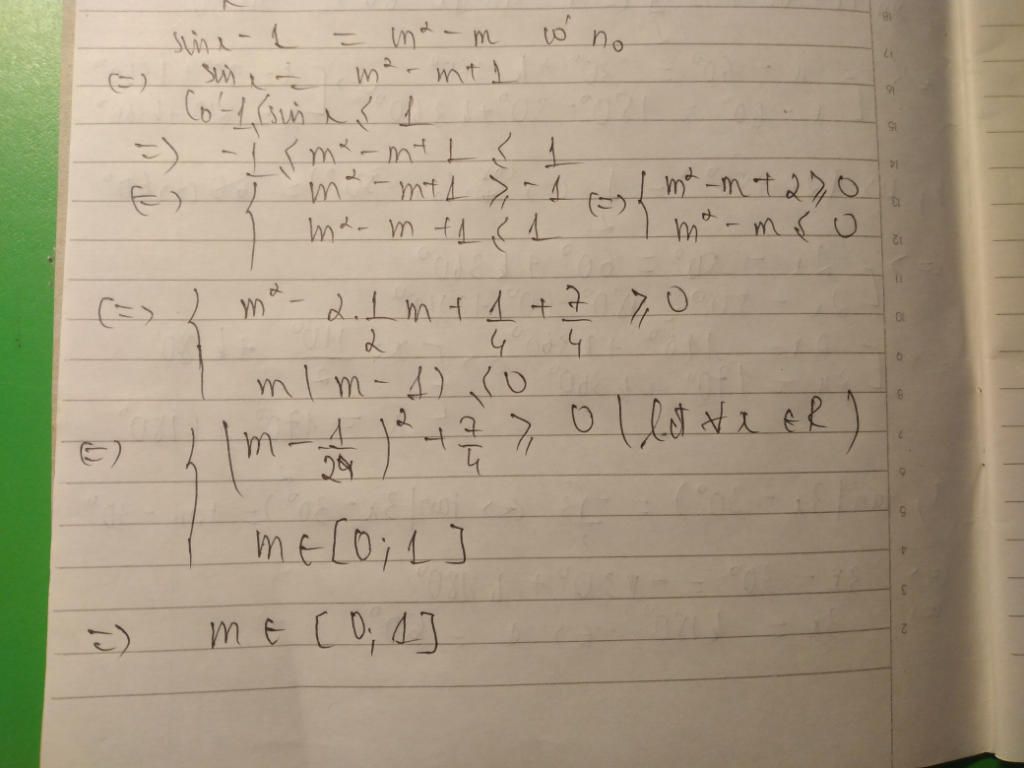 sin x - 1 = m² - m có n₀
(=) sin x = m² - m + 1
Có -1 ≤ sin x ≤ 1
=) -1 ≤ m² - m + 1 ≤ 1
(=) { m² - m + 1 ≥ -1 (=) { m² - m + 2 ≥ 0
m² - m + 1 ≤ 1 m² - m ≤ 0
(=) { m² - 2.1/2 m + 1/4 + 7/4 ≥ 0
m(m - 1) ≤ 0
(=) { (m - 1/2)² + 7/4 ≥ 0 (lđ ∀x ∈ R)
m ∈ [0; 1]
=) m ∈ [0; 1]